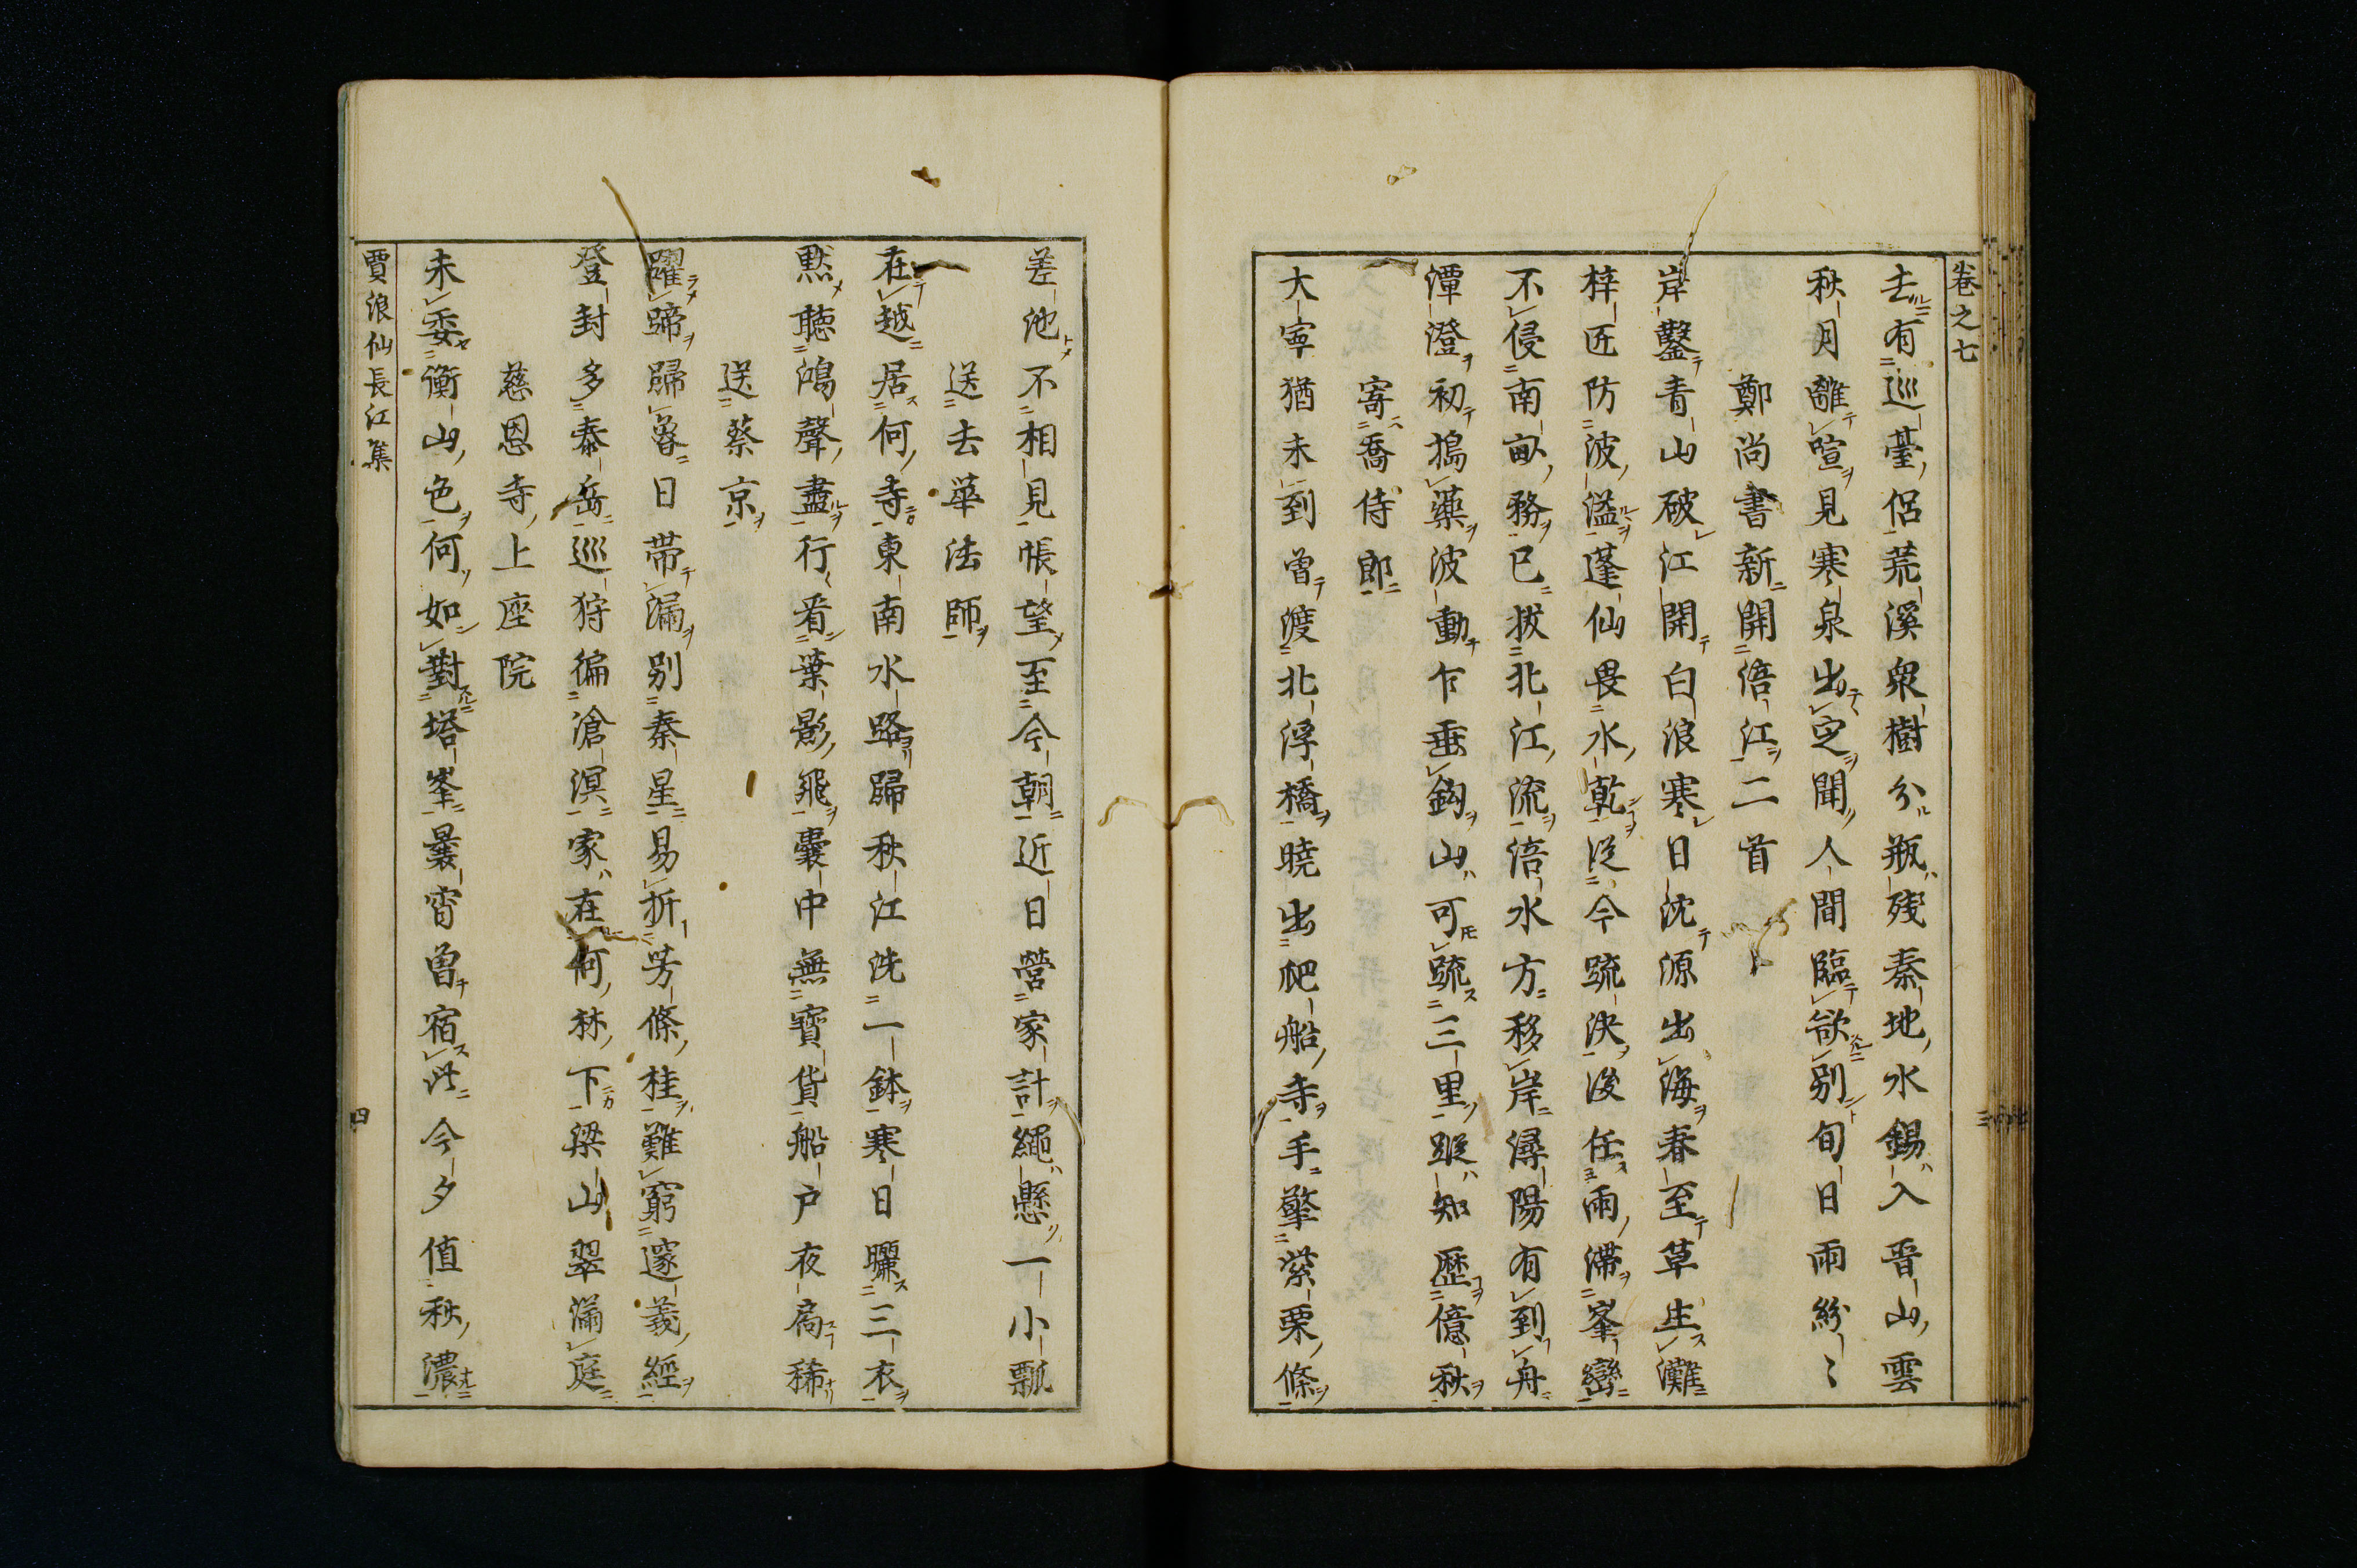 卷之七
去有巡臺侶荒溪衆樹分瓶殘秦地水錫入晉山雲
秋月離喧見寒泉出定聞人間臨欲別旬日雨紛〻
鄭尚書新開涪江二首
岸鑿青山破江開白浪寒日沈源出海春至草生灘
梓匠防波溢蓬仙畏水乾從今疏決後任雨滯峯巒
不侵南畝務已拔北江流涪水方移岸潯陽有到舟
潭澄初搗藥波動乍垂鈎山可疏三里蹤知歷億秋
寄喬侍郎
大寧猶未到曾渡北浮橋曉出爬船寺手擎紫栗條
差池不相見帳望至今朝近日營家計繩懸一小瓢
送去華法師
在越居何寺東南水路歸秋江洗一鉢寒日曬三衣
默聽鴻聲盡行看葉影飛囊中無寶貨船戶夜扄稀
送蔡京
躍蹄歸魯日帶漏別秦星易折芳條桂難窮邃義經
登封多泰岳巡狩徧滄溟家在何林下梁山翠滿庭
慈恩寺上座院
未委衡山色何如對塔峯曩宵曾宿此今夕值秋濃
賈浪仙長江集
四